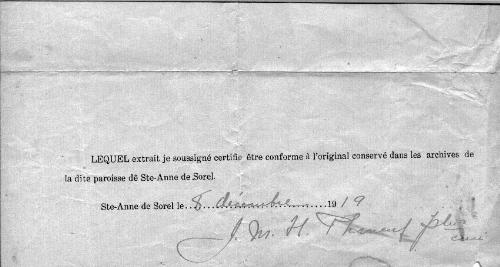 LEQUEL extrait je soussigné certifie être conforme à l'original conservé dans les archives de
la dite paroisse dê Ste-Anne de Sorel.
Ste-Anne de Sorel le..8..décembre........1919
J. M. H.
curé